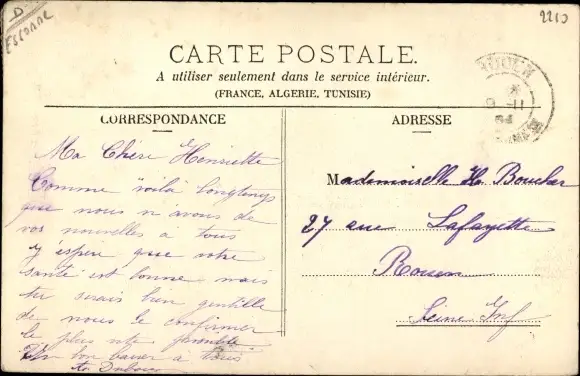 D
ESSONNE
2213
CARTE POSTALE.
A utiliser seulement dans le service intérieur.
(FRANCE, ALGERIE, TUNISIE)
CORRESPONDANCE
ADRESSE
Ma Chère Henriette
Comme voila longtemps
que nous n'avons de
vos nouvelles a tous
j'espère que votre
santé est bonne mais
tu serais bien gentille
de nous le confirmer
le plus vite possible
Un bon baiser a tous
Mademoiselle H. Boucher
27 rue Lafayette
Rouen
Seine Inf